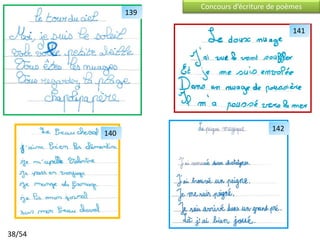 Concours d'écriture de poèmes
139
le tour du ciel
Moi, je suis le soleil
petite
Vous êtes les nuages
Vous regardez la
141
Le doux nuage
J'ai vu le vent souffler
Et je me suis envolée
Dans un nuage de poussière
Il m'a poussé vers la mer
140
Le beau cheval
J'aime bien les clémentines
Je m'appelle Valentine
Je pars en voyage
Je mange du fromage
Je lis mon journal
sur mon beau cheval
142
Le peigne magique
J'ai trouvé un peigne.
Je me suis peigné.
Je suis arrivé dans un grand pré.
Et j'ai bien joué.
38/54